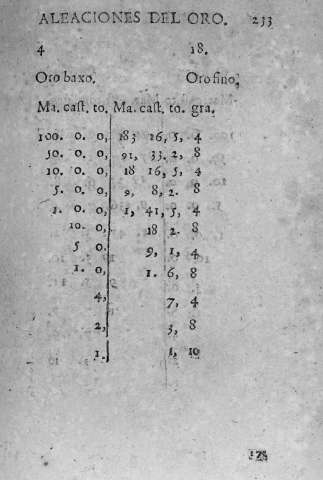 ALEACIONES DEL ORO. 233
4 18.
Oro baxo. Oro fino,
Ma. cast. to. Ma. cast. to. gra.
100. 0. 0, 183 16, 5, 4
50. 0. 0, 91, 33. 2, 8
10. 0. 0, 18 16, 5, 4
5. 0. 0, 9, 8, 2. 8
1. 0. 0, 1, 41, 5, 4
10. 0, 18 2. 8
5 0. 9, 1, 4
1. 0, 1. 6, 8
4, 7, 4
2, 3, 8
1. 1, 10